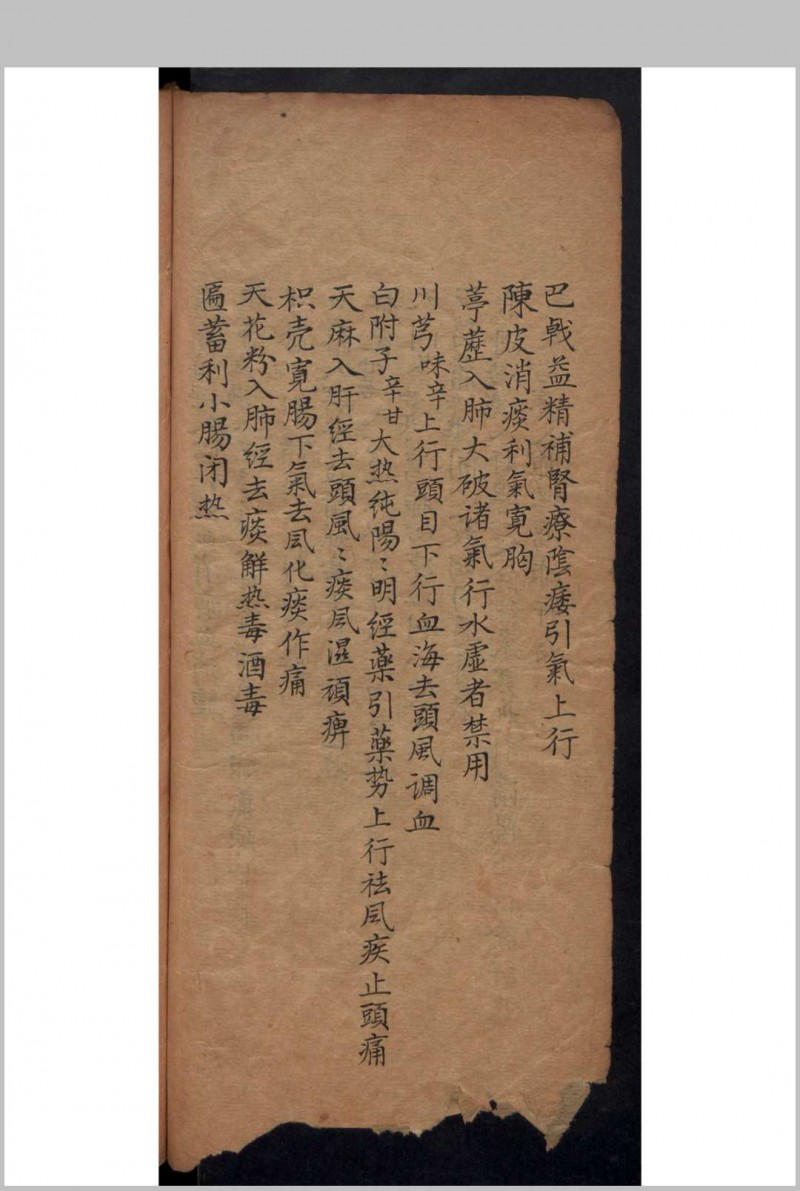 巴戟益精補腎療陰痿引氣上行
陳皮消痰利氣寛胸
葶藶入肺大破诸氣行水虛者禁用
川芎味辛上行頭目下行血海去頭風调血
白附子辛甘大热纯陽〻明經藥引藥势上行祛凨疾止頭痛
天麻入肝經去頭風〻痰凨濕頑痹
枳壳寛腸下氣去凨化痰作痛
天花粉入肺經去痰解热毒酒毒
匾蓄利小腸闭热